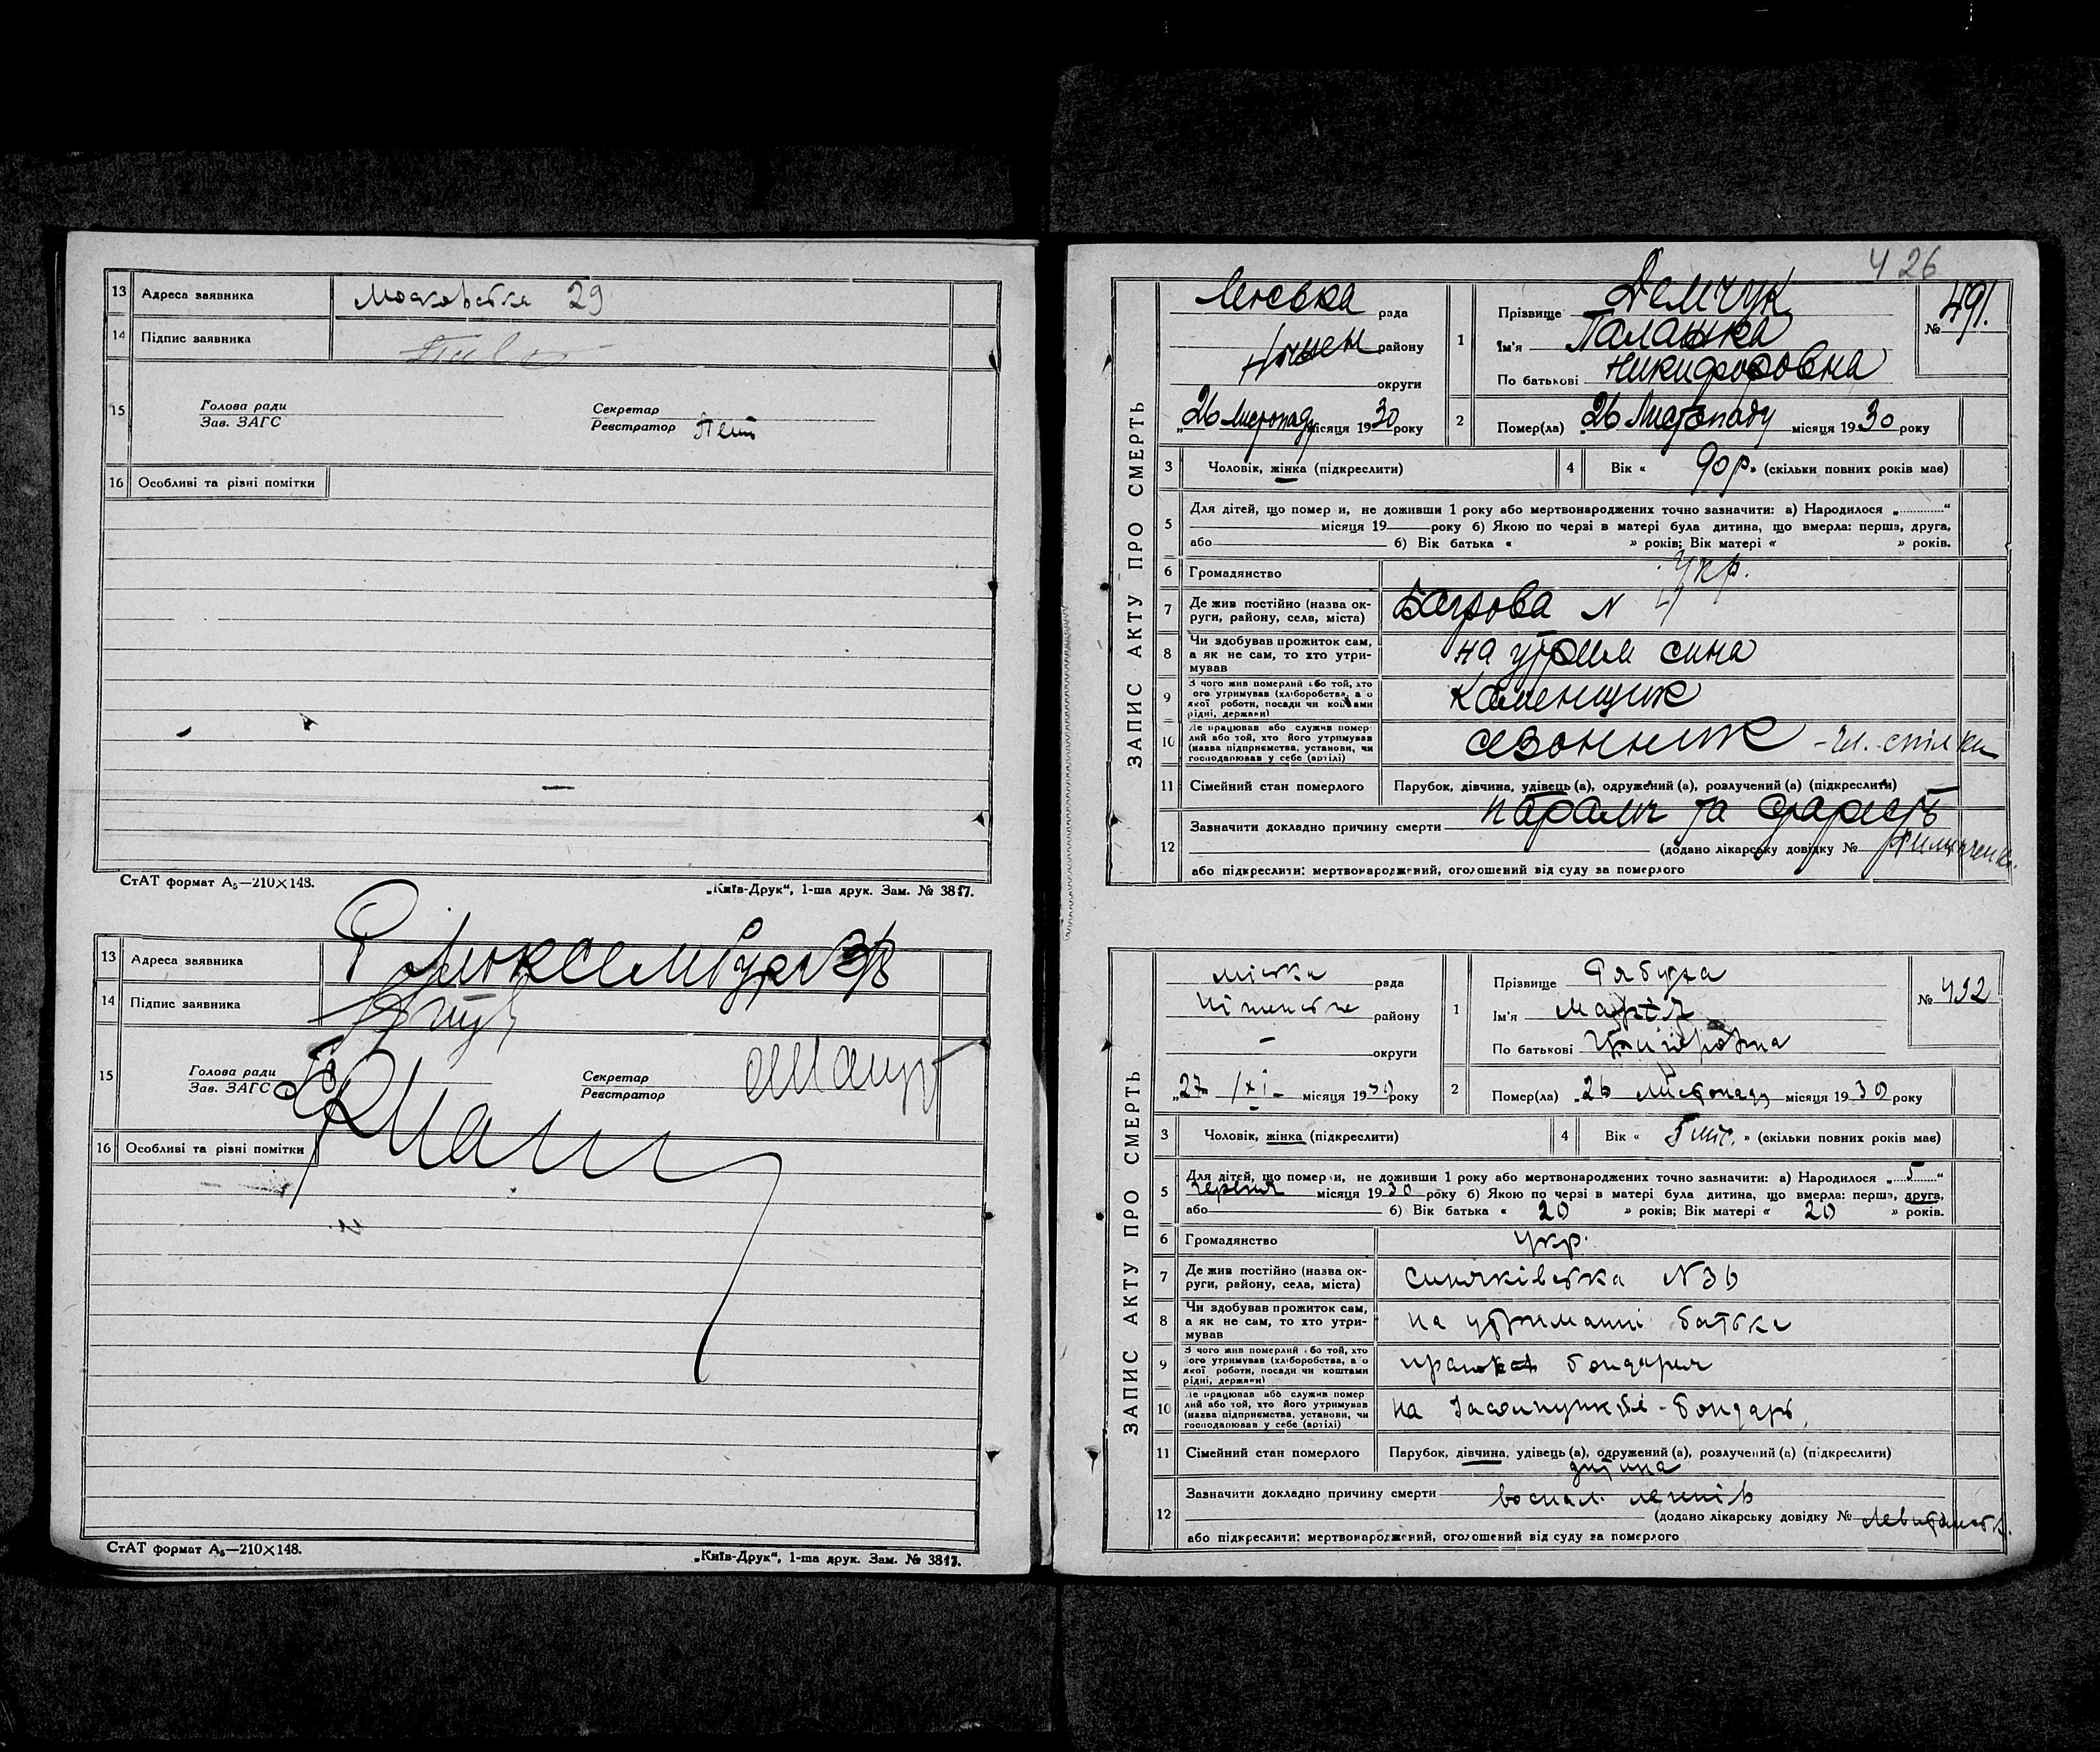 13 Адреса заявника Московська 29
14 Підпис заявника
15 Голова ради
Зав. ЗАГС
Секретар
Реєстратор
16 Особливі та різні помітки
СтАТ формат А₅—210×148.
„Київ-Друк“, 1-ша друк. Зам. № 3817.
13 Адреса заявника Р Люксембург 3/8
14 Підпис заявника
15 Голова ради
Зав. ЗАГС
Секретар
Реєстратор
16 Особливі та різні помітки
СтАТ формат А₅—210×148.
„Київ-Друк“, 1-ша друк. Зам. № 3817.
426
ЗАПИС АКТУ ПРО СМЕРТЬ
рада
району
округи
„26 Листопаду місяця 1930 року
1 Прізвище Демчук
Ім'я Палашка
По батькові Никифоровна
№ 491.
2 Помер(ла) „26 Листопаду місяця 1930 року
3 Чоловік, жінка (підкреслити)
4 Вік « 90 р » (скільки повних років має)
5 Для дітей, що померли, не доживши 1 року або мертвонароджених точно зазначити: а) Народилося „............“
місяця 19 року б) Якою по черзі в матері була дитина, що вмерла: перша, друга,
або б) Вік батька « » років; Вік матері « » років.
6 Громадянство Укр.
7 Де жив постійно (назва округи, району, села, міста) N
8 Чи здобував прожиток сам, а як не сам, то хто утримував на утрим сина
9 З чого жив померлий або той, хто його утримував (хліборобства, або якої роботи, посади чи коштами рідні, держави) Каменщик
10 Де працював або служив померлий або той, хто його утримував (назва підприємства, установи, чи господарював у себе (артілі) сезонник - чл. спілки
11 Сімейний стан померлого Парубок, дівчина, удівець (а), одружений (а), розлучений (а) (підкреслити)
12 Зазначити докладно причину смерти параліч та старість
(додано лікарську довідку №
або підкреслити: мертвонароджений, оголошений від суду за померлого
ЗАПИС АКТУ ПРО СМЕРТЬ
міська рада
району
— округи
„27 /XI— місяця 1930 року
1 Прізвище Рябуха
Ім'я Марія
По батькові
№ 492
2 Помер(ла) „26 листопаду місяця 1930 року
3 Чоловік, жінка (підкреслити)
4 Вік « 5 міс. » (скільки повних років має)
5 Для дітей, що померли, не доживши 1 року або мертвонароджених точно зазначити: а) Народилося „5“
червня місяця 1930 року б) Якою по черзі в матері була дитина, що вмерла: перша, друга,
або б) Вік батька « 20 » років; Вік матері « 20 » років.
6 Громадянство Укр.
7 Де жив постійно (назва округи, району, села, міста) Синяківська N 36
8 Чи здобував прожиток сам, а як не сам, то хто утримував на утриманні батька
9 З чого жив померлий або той, хто його утримував (хліборобства, або якої роботи, посади чи коштами рідні, держави) бондаря
10 Де працював або служив померлий або той, хто його утримував (назва підприємства, установи, чи господарював у себе (артілі) на Засолпункті - бондарь
11 Сімейний стан померлого Парубок, дівчина, удівець (а), одружений (а), розлучений (а) (підкреслити)
дитина
12 Зазначити докладно причину смерти воспал. легенів
(додано лікарську довідку №
або підкреслити: мертвонароджений, оголошений від суду за померлого